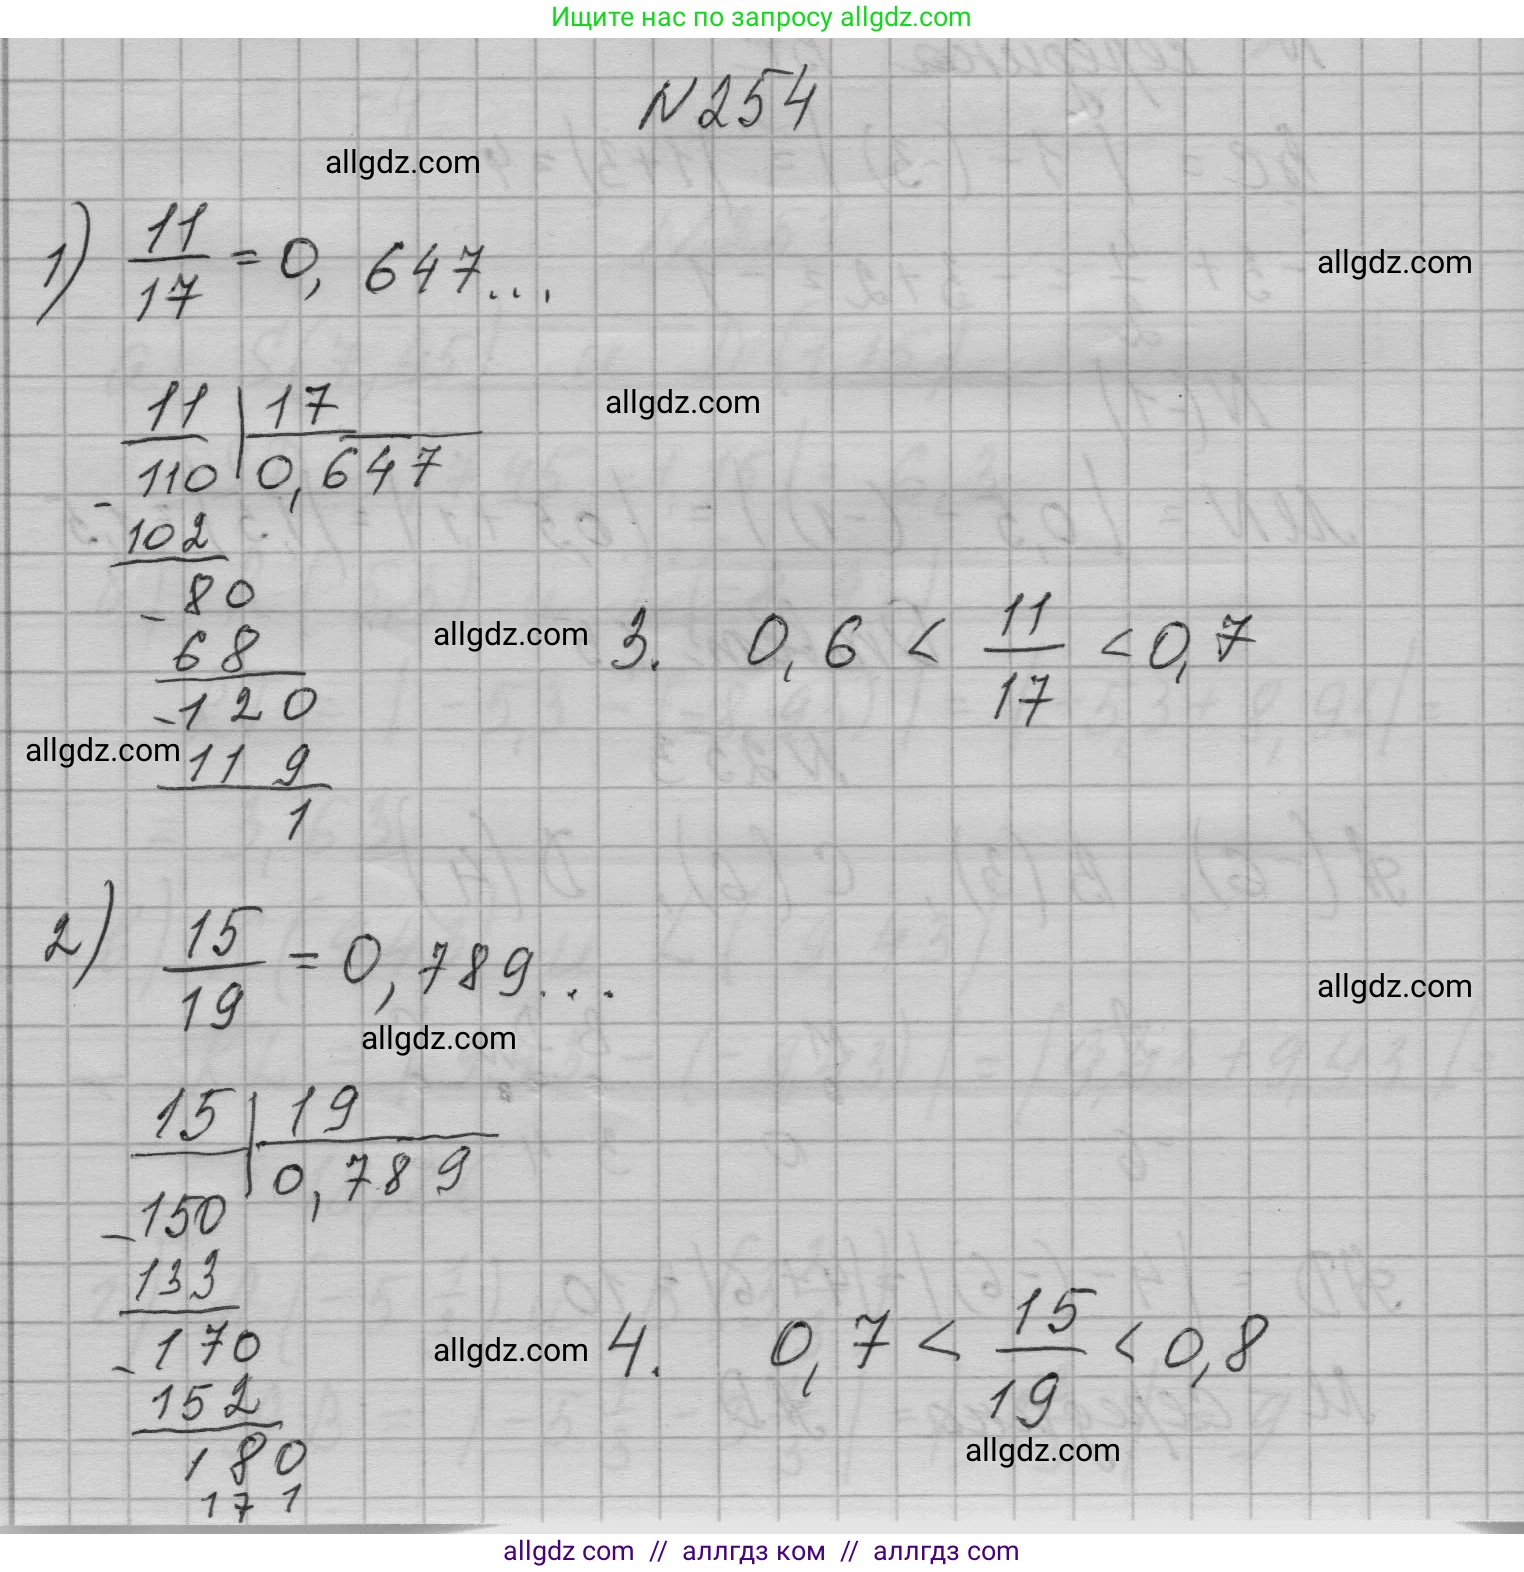 Ищите нас по запросу allgdz.com
N254
allgdz.com
1) 11/17 = 0, 647...
allgdz.com
11 | 17
allgdz.com
110 | 0,647
- 102
- 80
68
allgdz.com
3. 0,6 < 11/17 < 0,7
- 120
allgdz.com
119
1
2) 15/19 = 0,789...
allgdz.com
allgdz.com
15 | 19
- 150 | 0,789
133
- 170
allgdz.com
4. 0,7 < 15/19 < 0,8
152
allgdz.com
180
171
allgdz com // аллгдз ком // аллгдз com